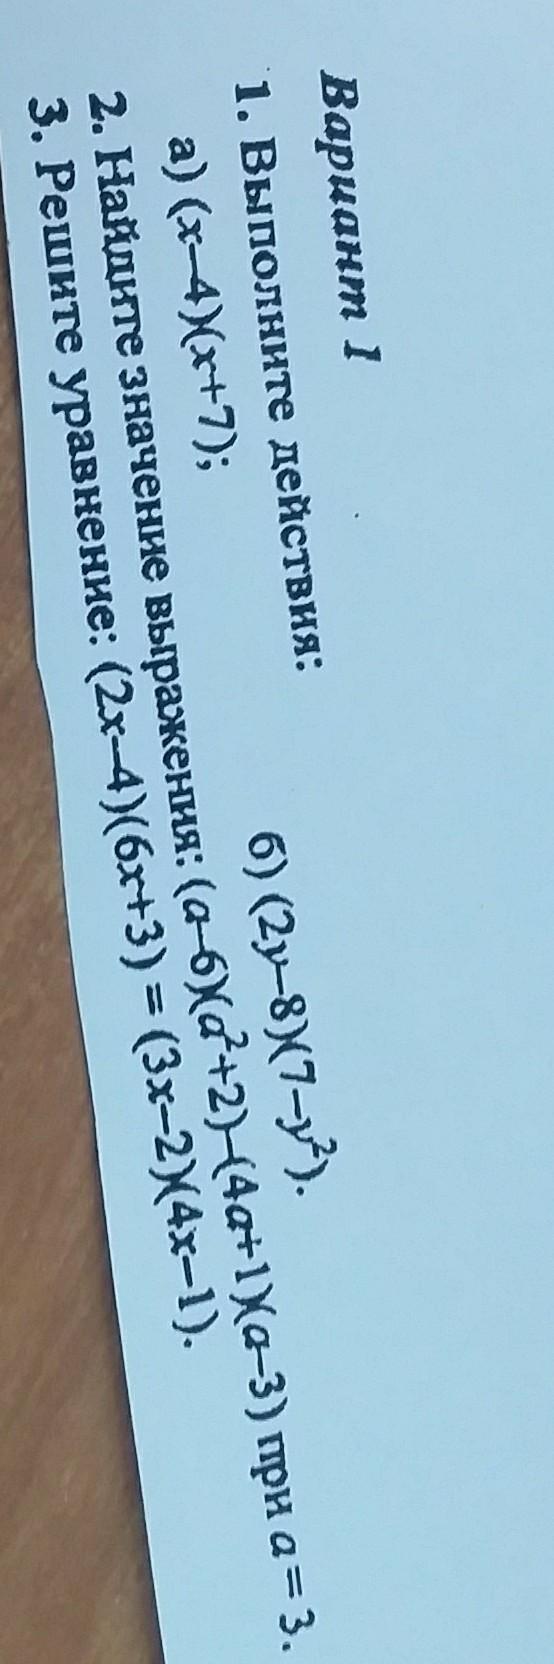 Вариант 1
1. Выполните действия:
а) (x–4)(x+7); б) (2y–8)(7–y²).
2. Найдите значение выражения: (a–6)(a²+2)–(4a+1)(a–3) при a = 3.
3. Решите уравнение: (2x–4)(6x+3) = (3x–2)(4x–1).